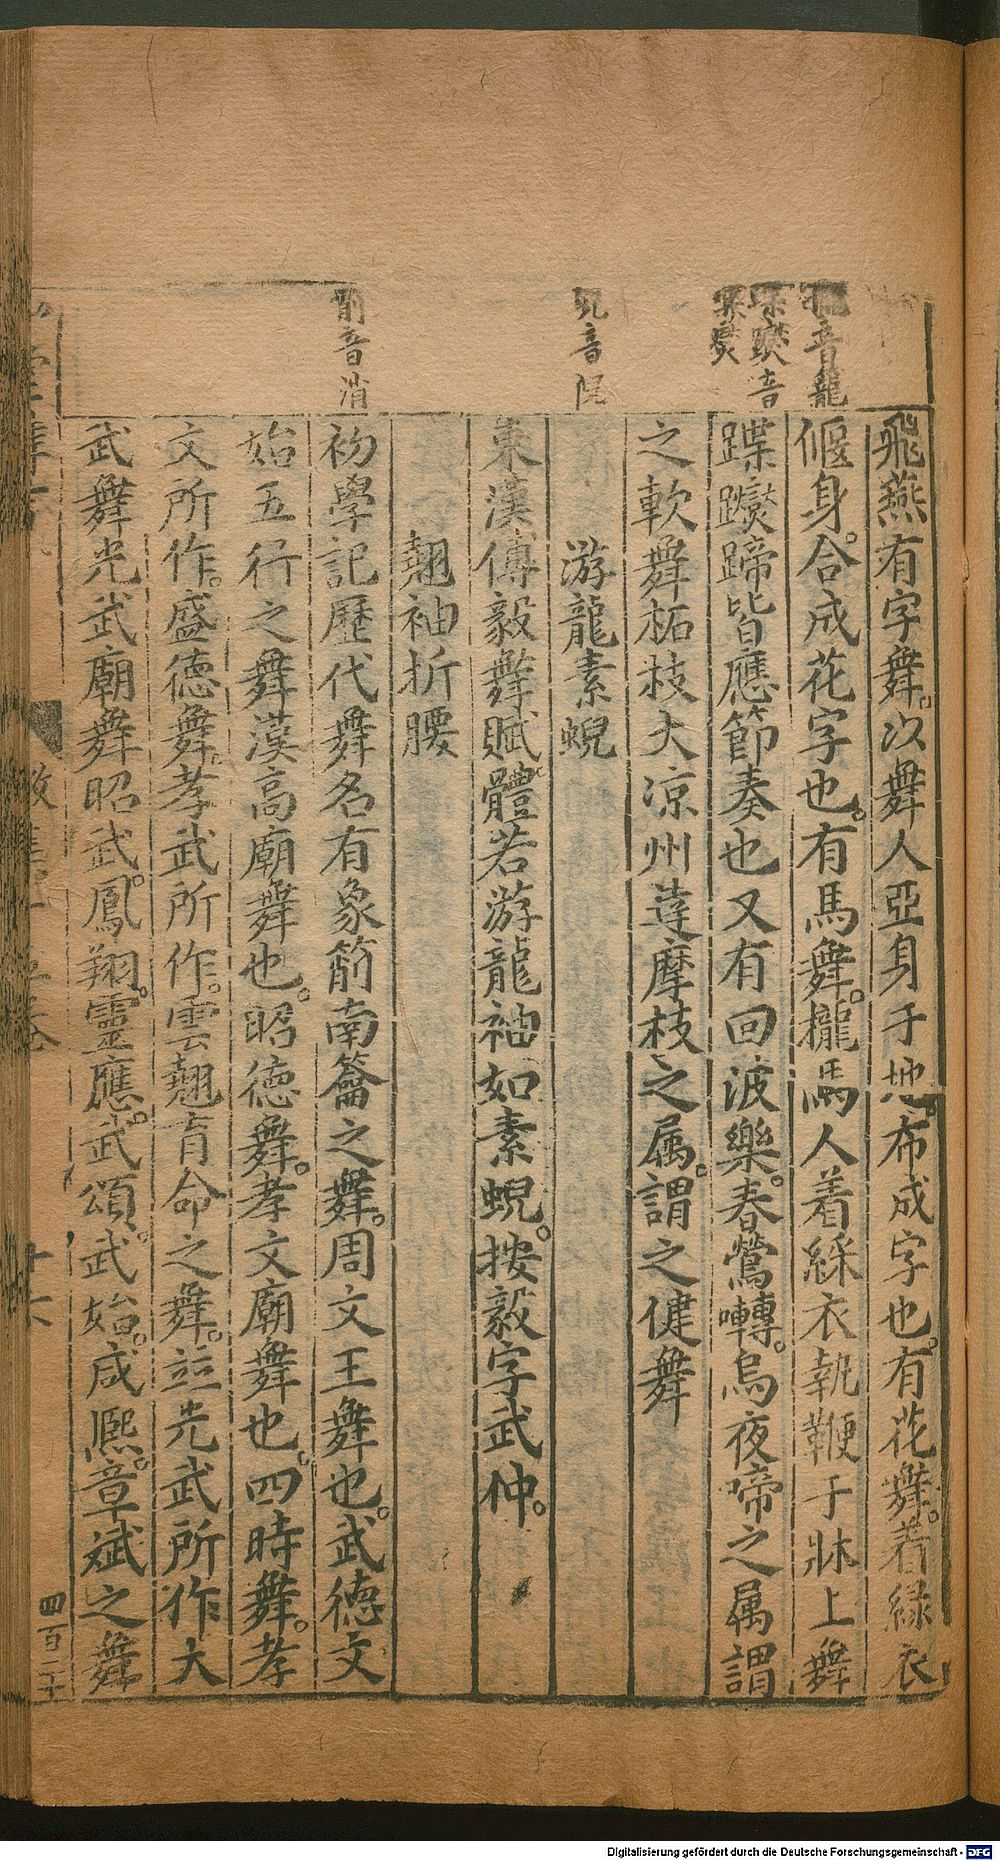 櫳音籠
蹀躞音
楪燮
霓音倪
箾音消
飛燕有字舞。以舞人亞身于地。布成字也。有花舞。着緑衣
偃身。合成花字也。有馬舞。櫳馬人着綵衣執鞭于牀上舞
蹀躞蹄皆應節奏也又有回波樂。春鶯囀。烏夜啼之属謂
之軟舞柘枝大凉州達摩枝之属。謂之健舞
游龍素蜺
東漢傅毅舞賦體若游龍袖如素蜺。按毅字武仲。
翹袖折腰
初學記歷代舞名有象箾南籥之舞。周文王舞也。武德文
始五行之舞漢高廟舞也。昭德舞。孝文廟舞也。四時舞。孝
文所作。盛德舞。孝武所作。雲翹育命之舞。並光武所作大
武舞光武廟舞昭武。鳳翔。靈應。武頌。武始。咸熈。章斌之舞
十六
四百二十
Digitalisierung gefördert durch die Deutsche Forschungsgemeinschaft - DFG